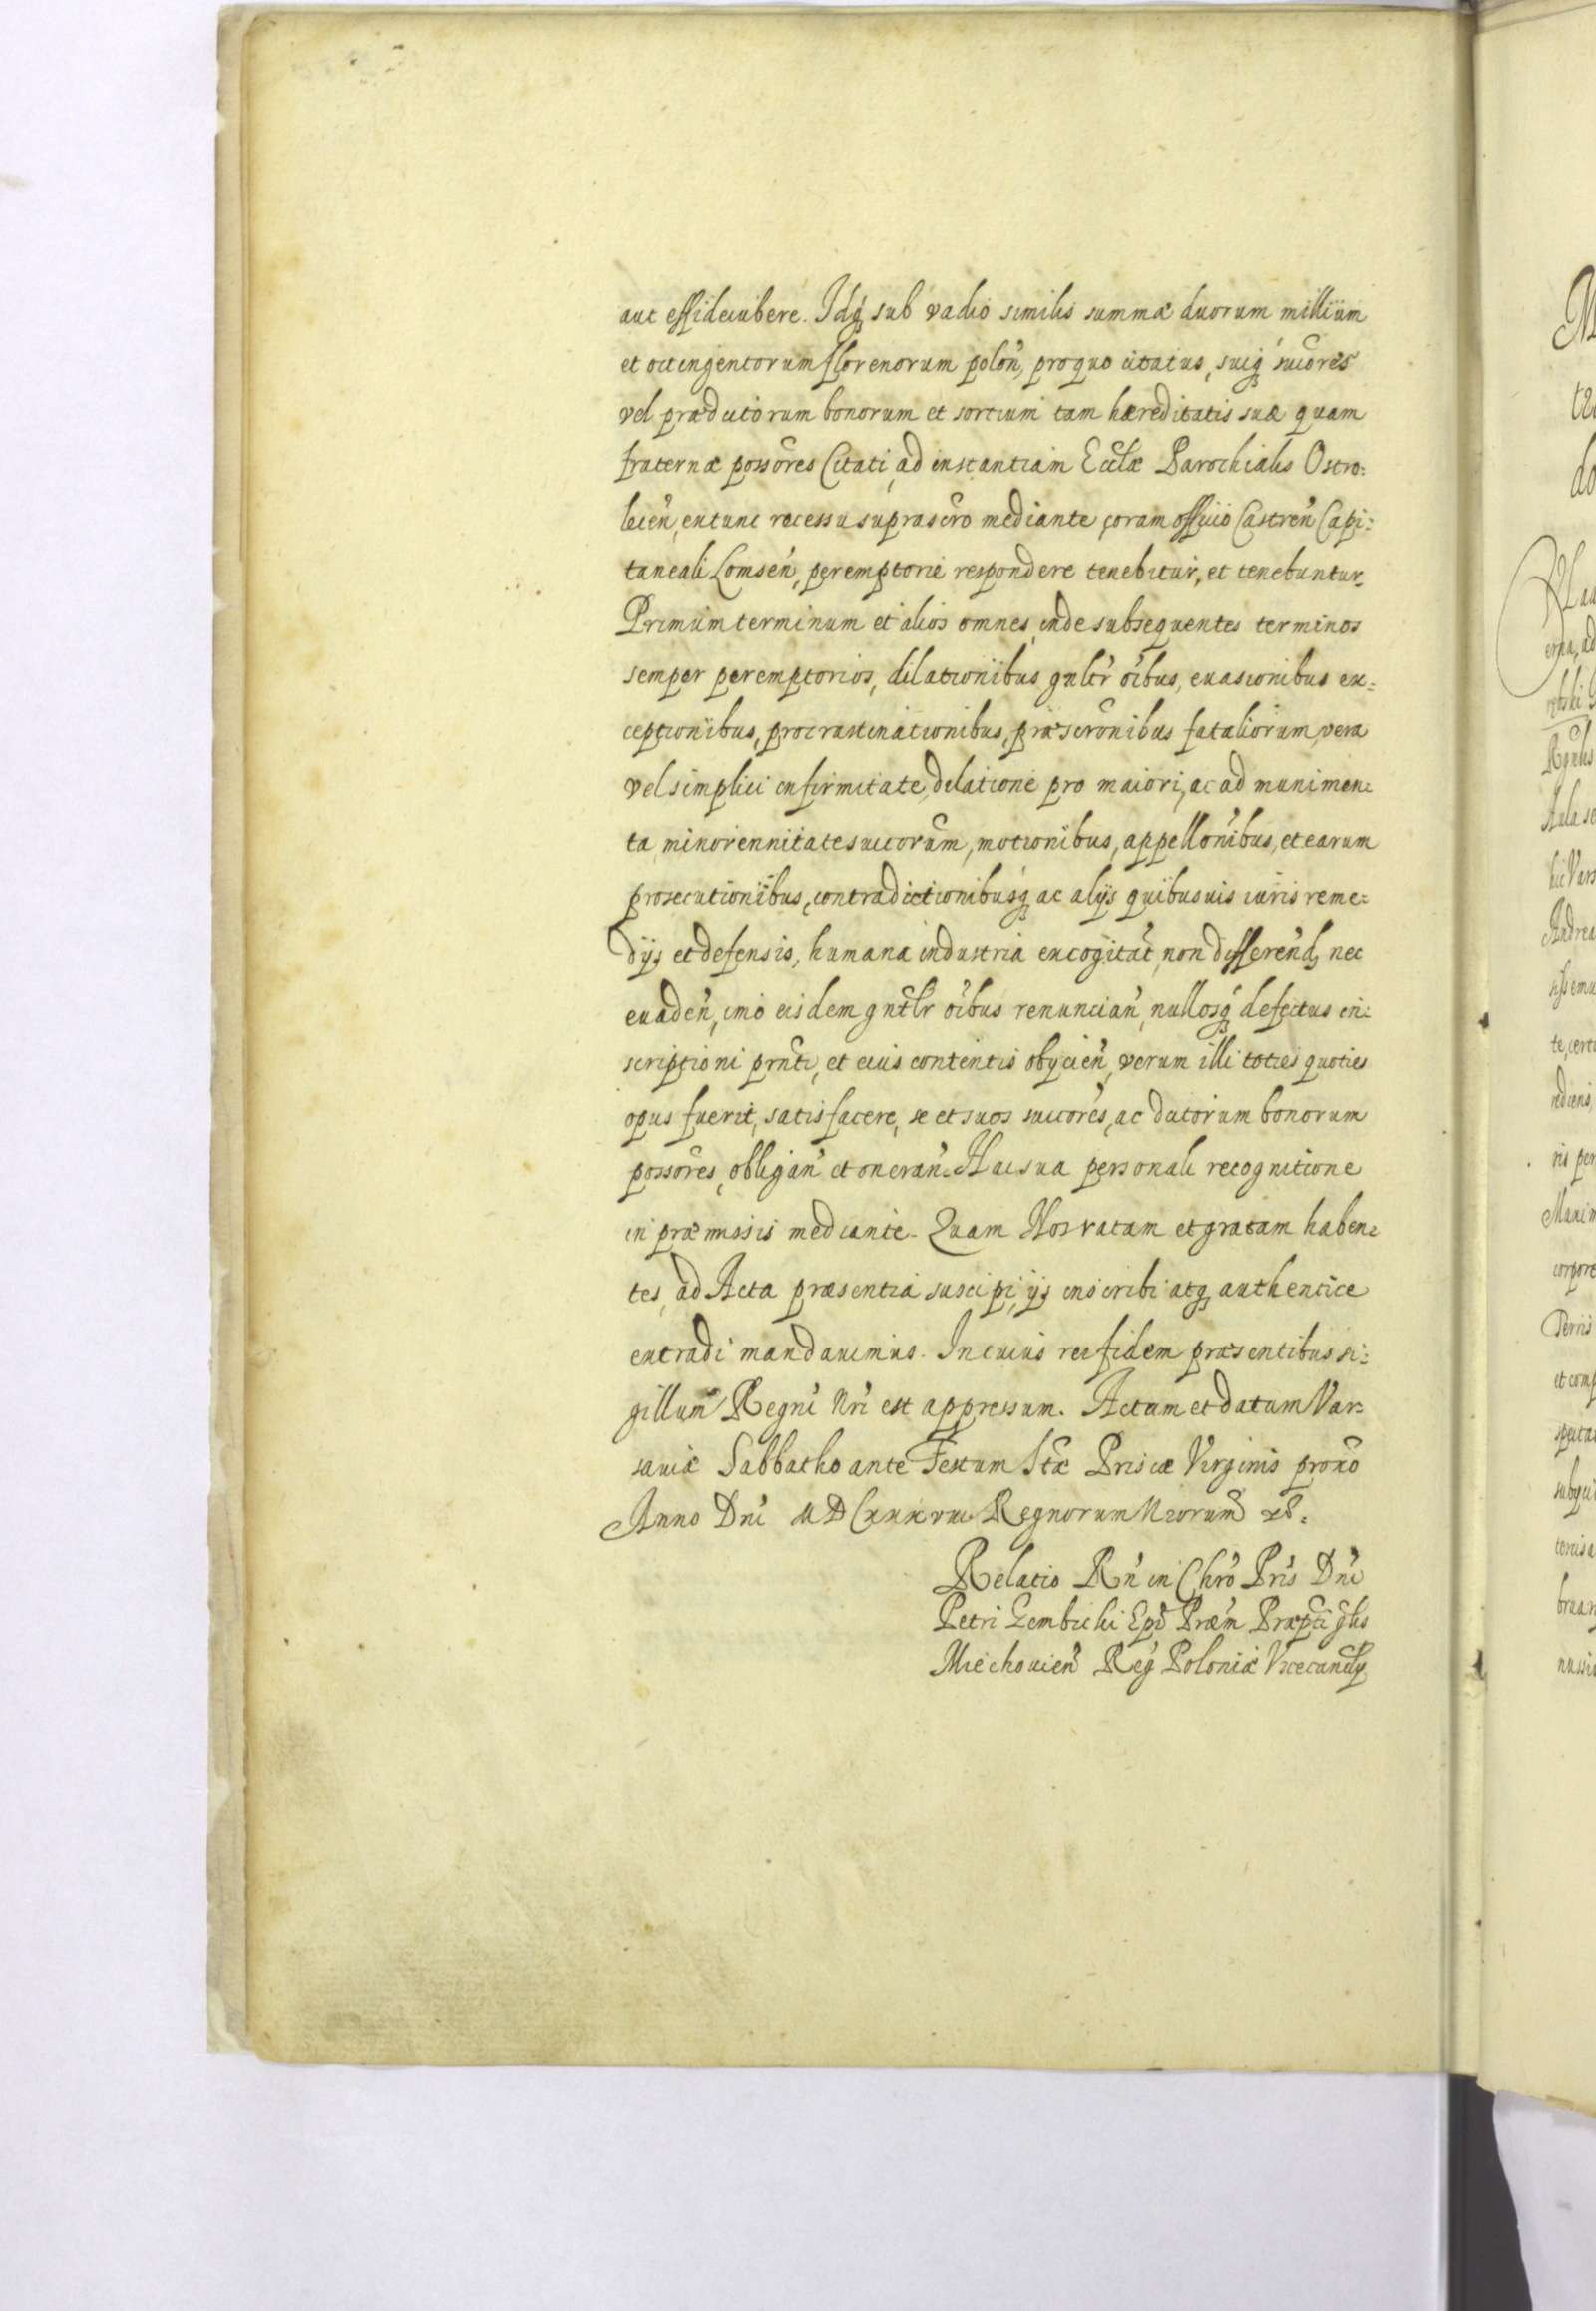 aut effideiubere. Idq; sub vadio similis summæ duorum milliúm
et octingentorum florenorum polon̄, pro quo citatus, suiq; succores̄
vel prædictorum bonorum et sortium tam hæreditatis suæ quam
fraternæ possōres Citati, ad instantiam Ecclæ Parochialis Ostro:
lecen̄, extunc recessu suprascr̄o mediante, coram officio Castren̄ Capi:
taneali Lomsen̄, peremptorie respondere tenebitur, et tenebuntur.
Primum terminum et alios omnes, inde subsequentes terminos
semper peremptorios, dilationibus gnlter̄ oībus, euasionibus ex:
ceptionibus, procrastinationibus, præscrōnibus fataliorum, vera
vel simplici infirmitate, dilatione pro maiori, ac ad munimen:
ta, minorennitate succorum̄, motionibus, appellōnibus, et earum
prosecutionibus, contradictionibusq; ac alijs quibusuis iuris reme:
dijs et defensis, humana industria excogitat̄, non differend̄, nec
euaden̄, imo eisdem gnt̄lr oībus renuncian̄, nullosq; defectus in:
scriptioni prnt̄i, et eius contentis obijcien̄, verum illi toties quoties
opus fuerit, satisfacere, se et suos succorēs, ac dictorum bonorum
possorēs, obligan̄ et oneran̄. Hac sua personali recognitione
in præmissis mediante. Quam Nos ratam et gratam haben:
tes, ad Acta præsentia suscipi, ijs inscribi atq; authentice
extradi mandauimus. In cuius rei fidem præsentibus si:
gillum Regni Nr̄i est appressum. Actum et datum Var:
sauiæ Sabbatho ante Festum Stǣ Priscæ Virginis proxō
Anno Dn̄i MDCXXXVIII Regnorum Nrorum̄
Relatio Rn̄ in Chrō Pris̄ Dn̄i
Petri Gembicki Ep̄i Præm̄ Præpt̄i glis̄
Miechouien̄ Reḡ Poloniæ Vicecancell̄